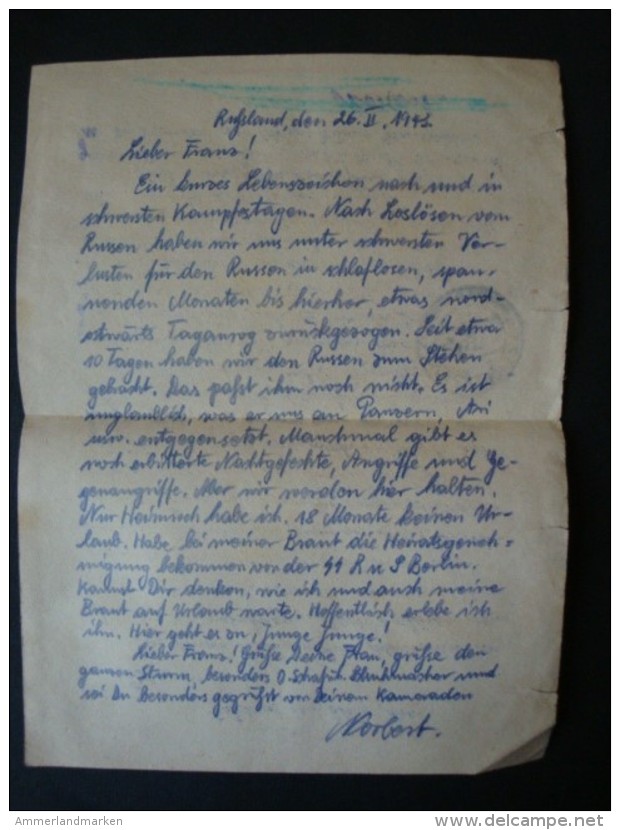 Rußland, den 26. II. 1943.
Lieber Franz!
Ein kurzes Lebenszeichen nach und in
schwersten Kampfestagen. Nach Loslösen vom
Russen haben wir uns unter schwersten Ver-
lusten für den Russen in schlaflosen, span-
nenden Monaten bis hierher, etwas nord-
ostwärts Taganrog zurückgezogen. Seit etwa
10 Tagen haben wir den Russen zum Stehen
gebracht. Das paßt ihm noch nicht. Es ist
unglaublich, was er uns an Panzern, Ari
usw. entgegensetzt. Manchmal gibt es
noch erbitterte Nachtgefechte, Angriffe und Ge-
genangriffe. Aber wir werden hier halten.
Nur Heimweh habe ich. 18 Monate keinen Ur-
laub. Habe bei meiner Braut die Heiratsgeneh-
migung bekommen von der SS R u S Berlin.
Kannst Dir denken, wie ich und auch meine
Braut auf Urlaub warte. Hoffentlich erlebe ich
ihn. Hier geht es zu, Junge Junge!
Lieber Franz! Grüße Deine Frau, grüße den
ganzen Sturm, besonders O.Schaf. und
sei Du besonders gegrüßt von Deinem Kameraden
Norbert.
Ammerlandmarken
www.delcampe.net